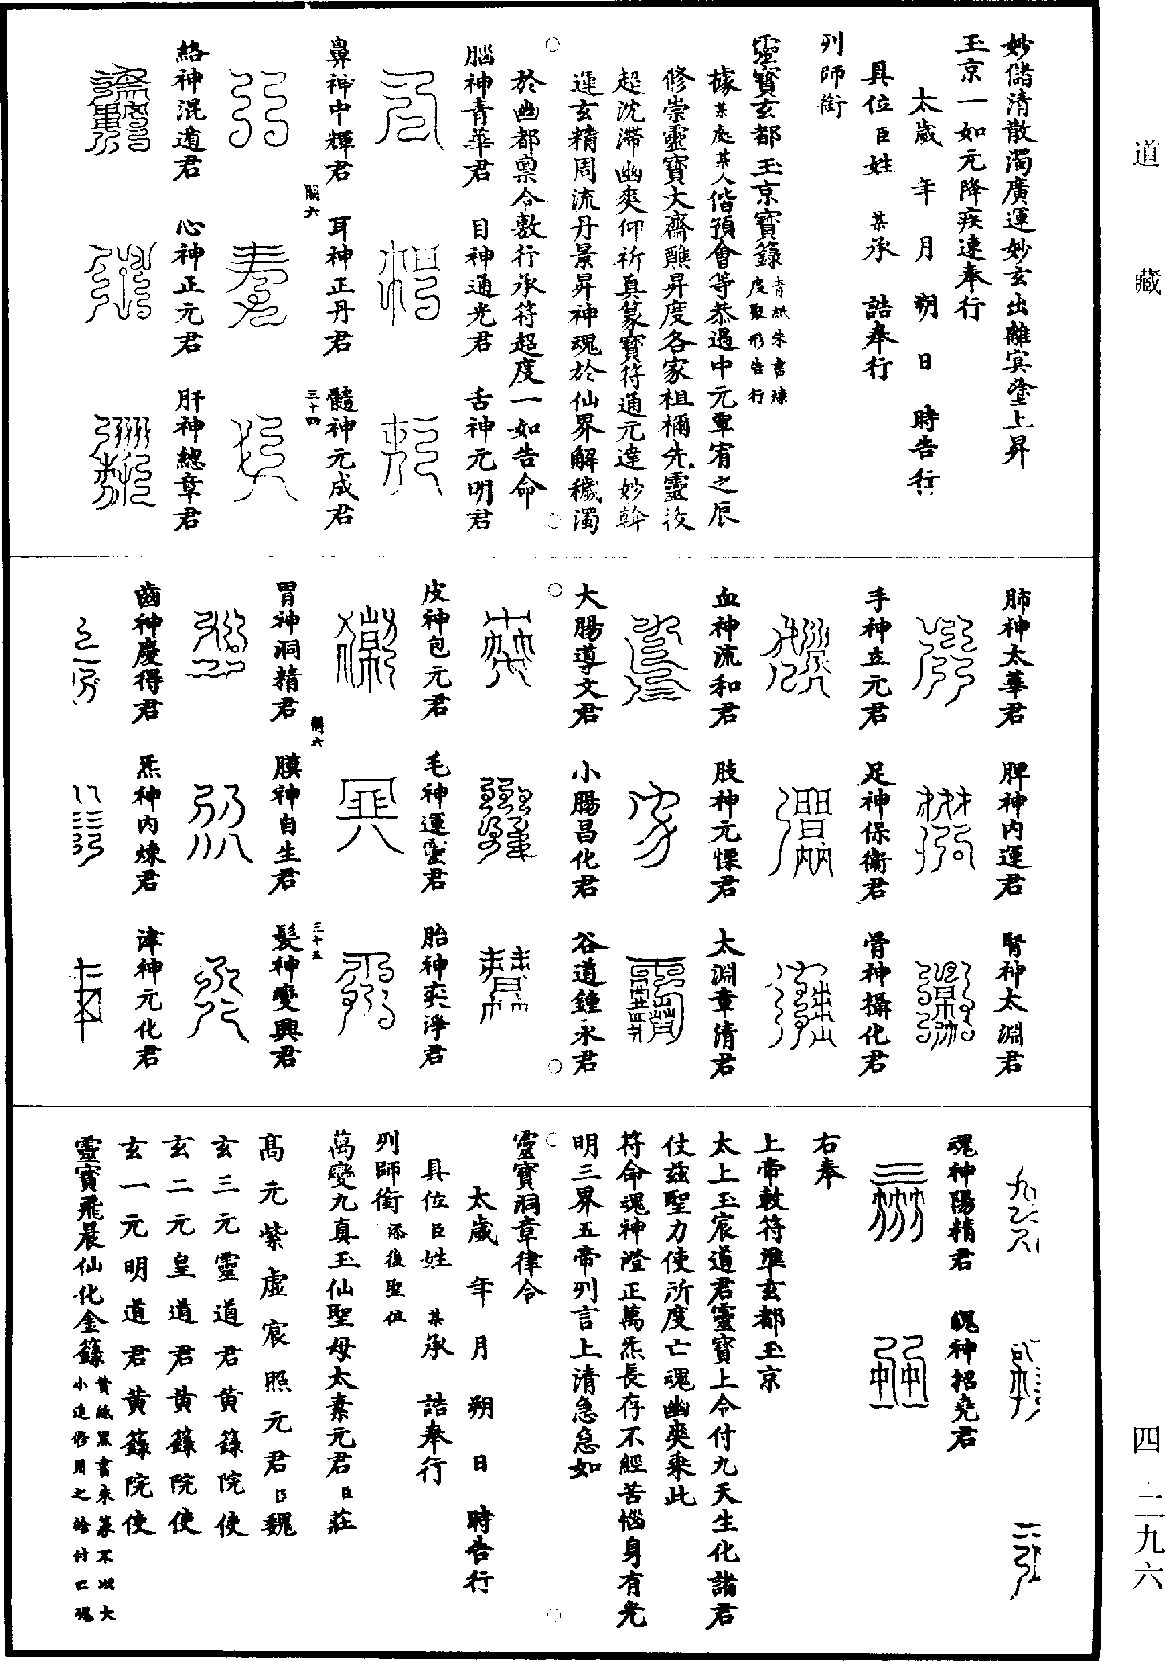 道藏
四·二九六
妙儲清散濁廣運妙玄出離㝠塗上昇
玉京一如元降疾速奉行
太歲　年　月　朔　日　時告行
具位臣姓　某承　誥奉行
列師銜
靈寶玄都玉京寶籙青紙朱書煉度聚形告行
據某處某人偕預會等恭遇中元單宥之辰
修崇靈寶大齋醮昇度各家祖禰先靈後
起沈滯幽爽仰祈真篆寶符通元達妙斡
運玄精周流丹景昇神魂於仙界解穢濁
於幽都稟令敷行承符超度一如告命
腦神青華君　目神通光君　舌神元明君
鼻神中輝君　耳神正丹君　髓神元成君
服六　三十四
絡神混道君　心神正元君　肝神總章君
肺神太華君　脾神內運君　腎神太淵君
手神立元君　足神保衛君　骨神攝化君
血神流和君　肢神元慄君　太淵章清君
大腸導文君　小腸昌化君　谷道鍾永君
皮神包元君　毛神運靈君　胎神奕淨君
胃神洞精君　膜神自生君　髮神變興君
三十五
齒神慶得君　炁神內煉君　津神元化君
魂神陽精君　魄神招堯君
右奉
上帝敕符準玄都玉京
太上玉宸道君靈寶上令付九天生化諸君
仗茲聖力使所度亡魂幽爽乘此
符命魂神澄正萬炁長存不經苦惱身有光
明三界五帝列言上清急急如
靈寶洞章律令
太歲　年　月　朔　日　時告行
具位臣姓　某承　誥奉行
列師銜添後聖位
萬變九真玉仙聖母太素元君臣莊
高元紫虛宸照元君臣魏
玄三元靈道君黃籙院使
玄二元皇道君黃籙院使
玄一元明道君黃籙院使
靈寶飛晨仙化金籙黃紙黑書朱篆不以大小進修用之給付亡魂